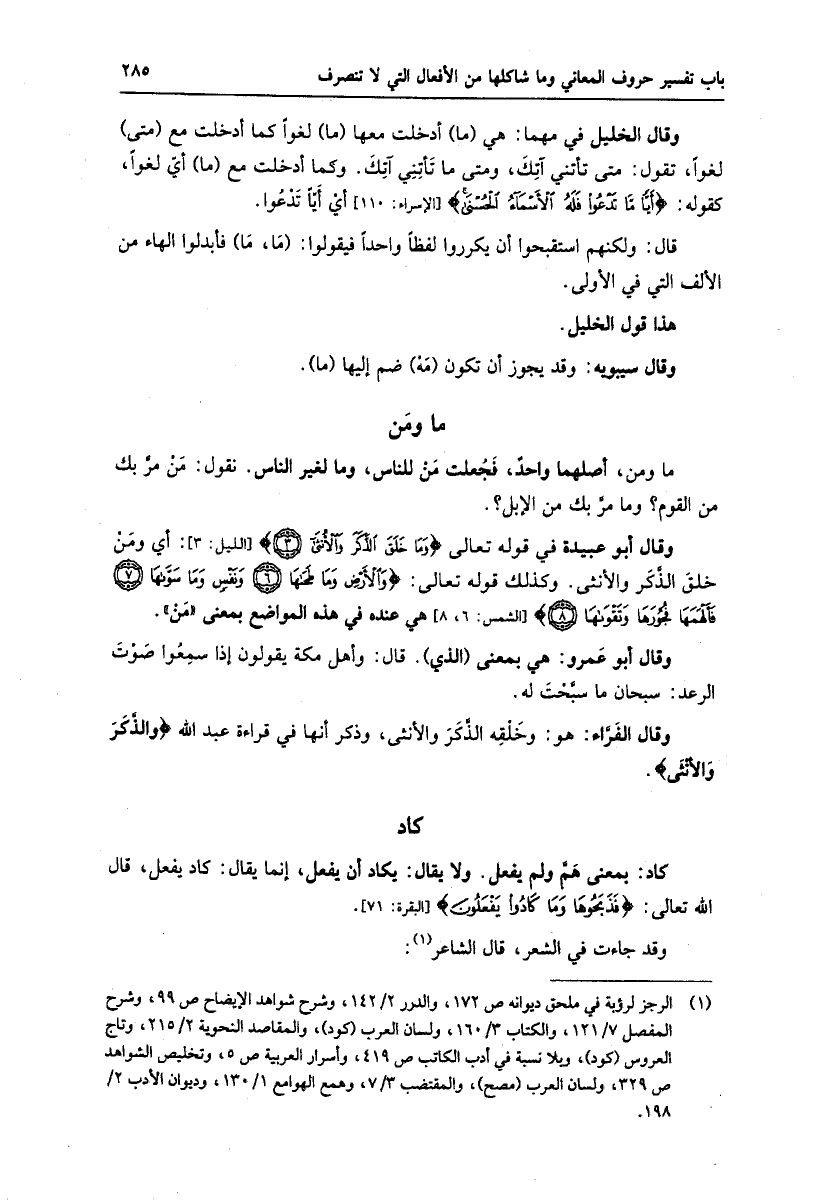 باب تفسير حروف المعاني وما شاكلها من الأفعال التي لا تتصرف ٢٨٥
وقال الخليل في مهما: هي (ما) أدخلت معها (ما) لغواً كما أدخلت مع (متى)
لغواً، تقول: متى تأتني آتِكَ، ومتى ما تَأتِنِي آتِكَ. وكما أدخلت مع (ما) أيّ لغواً،
كقوله: ﴿أَيًّا مَّا تَدْعُوا۟ فَلَهُ ٱلْأَسْمَآءُ ٱلْحُسْنَىٰ﴾ [الإسراء: ١١٠] أيْ أَيّاً تَدْعُوا.
قال: ولكنهم استقبحوا أن يكرروا لفظاً واحداً فيقولوا: (مَا، مَا) فأبدلوا الهاء من
الألف التي في الأولى.
هذا قول الخليل.
وقال سيبويه: وقد يجوز أن تكون (مَهْ) ضم إليها (ما).
ما ومَن
ما ومن، أصلهما واحدٌ، فَجُعلت مَنْ للناس، وما لغير الناس. نقول: مَنْ مرَّ بك
من القوم؟ وما مرَّ بك من الإبل؟.
وقال أبو عبيدة في قوله تعالى ﴿وَمَا خَلَقَ ٱلذَّكَرَ وَٱلْأُنثَىٰٓ ٣﴾ [الليل: ٣]: أي ومَنْ
خلقَ الذَّكَر والأنثى. وكذلك قوله تعالى: ﴿وَٱلْأَرْضِ وَمَا طَحَىٰهَا ٦ وَنَفْسٍ وَمَا سَوَّىٰهَا ٧
فَأَلْهَمَهَا فُجُورَهَا وَتَقْوَىٰهَا ٨﴾ [الشمس: ٦، ٨] هي عنده في هذه المواضع بمعنى «مَنْ».
وقال أبو عَمرو: هي بمعنى (الذي). قال: وأهل مكة يقولون إذا سمِعُوا صَوْتَ
الرعد: سبحان ما سبَّحْتَ له.
وقال الفَرَّاء: هو: وخَلْقِه الذَّكَرَ والأنثى، وذكر أنها في قراءة عبد الله ﴿والذَّكَرَ
وَالأُنْثَى﴾.
كاد
كاد: بمعنى هَمَّ ولم يفعل. ولا يقال: يكاد أن يفعل، إنما يقال: كاد يفعل، قال
الله تعالى: ﴿فَذَبَحُوهَا وَمَا كَادُوا۟ يَفْعَلُونَ﴾ [البقرة: ٧١].
وقد جاءت في الشعر، قال الشاعر(١):
(١) الرجز لرؤبة في ملحق ديوانه ص ١٧٢، والدرر ٢/ ١٤٢، وشرح شواهد الإيضاح ص ٩٩، وشرح
المفصل ٧/ ١٢١، والكتاب ٣/ ١٦٠، ولسان العرب (كود)، والمقاصد النحوية ٢/ ٢١٥، وتاج
العروس (كود)، وبلا نسبة في أدب الكاتب ص ٤١٩، وأسرار العربية ص ٥، وتخليص الشواهد
ص ٣٢٩، ولسان العرب (مصح)، والمقتضب ٣/ ٧، وهمع الهوامع ١/ ١٣٠، وديوان الأدب ٢/
١٩٨.